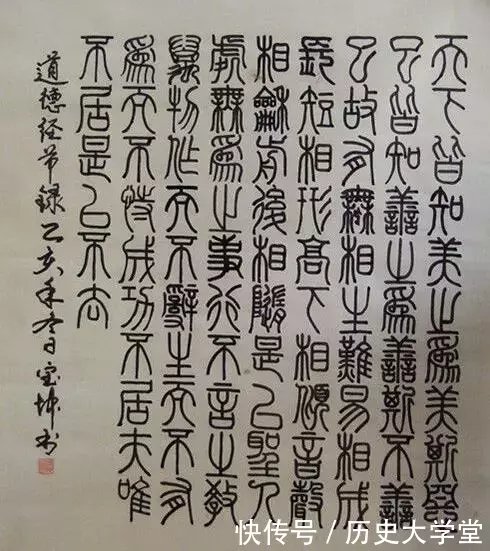 天下皆知美之為美斯惡
已皆知善之為善斯不善
已故有無相生難易相成
長短相形高下相傾音聲
相龢前後相隨是以聖人
處無為之事行不言之教
萬物作而不辭生而不有
為而不恃成功不居夫唯
不居是以不去
道德经节録乙亥年冬日宝坤书
快传号/历史大学堂